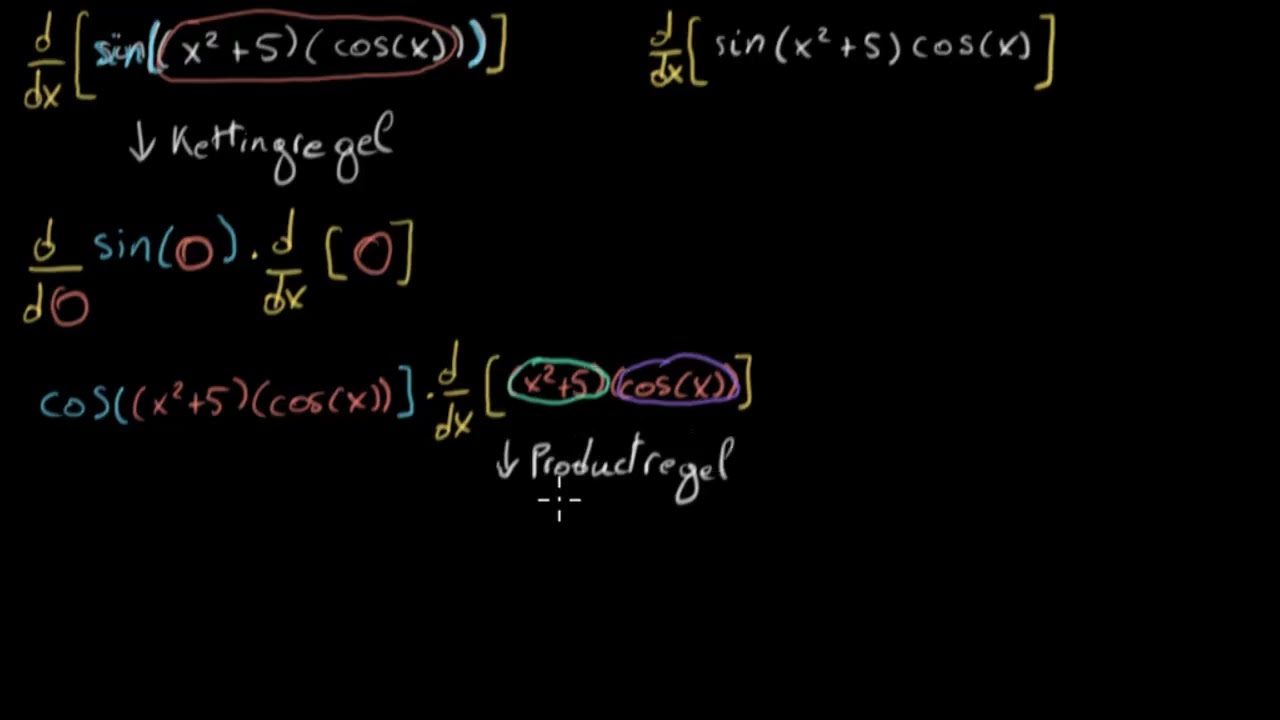 d/dx [sin((x²+5)(cos(x)))]
d/dx [sin(x²+5)cos(x)]
↓ Kettingregel
d/dO sin(O) · d/dx [O]
cos((x²+5)(cos(x))] · d/dx [(x²+5)(cos(x))]
↓ Productregel